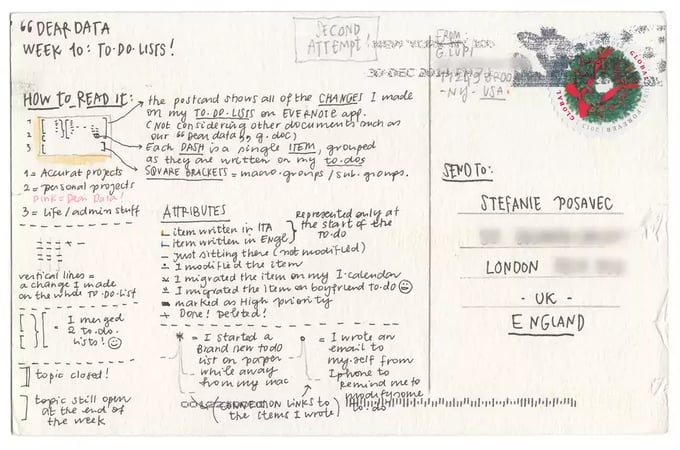 "DEAR DATA
WEEK 10: TO-DO-LISTS!
SECOND
ATTEMPT!
FROM:
G. LUPI
30 DEC
-NY- USA
GLOBAL
FOREVER
GLOBAL
HOW TO READ IT:
the postcard shows all of the CHANGES I made
on my TO-DO-LISTS on EVERNOTE app.
(Not considering other documents such as
our "Dear data", g.doc)
Each DASH is a single ITEM, grouped
as they are written on my to.dos
SQUARE BRACKETS = macro.groups/sub.groups.
1
2
3
1 = Accurat projects
2 = personal projects
Pink = Dear Data!
3 = life/admin stuff
vertical lines =
a change I made
on the whole TO-DO-LIST
= I merged
2 to.do.
lists!
topic closed!
topic still open
at the end of
the week
ATTRIBUTES
item written in ITA
item written in Engl
represented only at
the start of the
TO-do
just sitting there (not modified)
I modified the item
I migrated the item on my I-calendar
I migrated the item on boyfriend to.do
marked as High priority
+ Done! Deleted!
* = I started a
Brand new todo
list on paper
while away
from my mac
= I wrote an
email to
my.self from
Iphone to
Remind me to
modify some
to-do
(CONNECTION LINKS to
the items I wrote)
SEND TO:
STEFANIE POSAVEC
LONDON
- UK -
ENGLAND